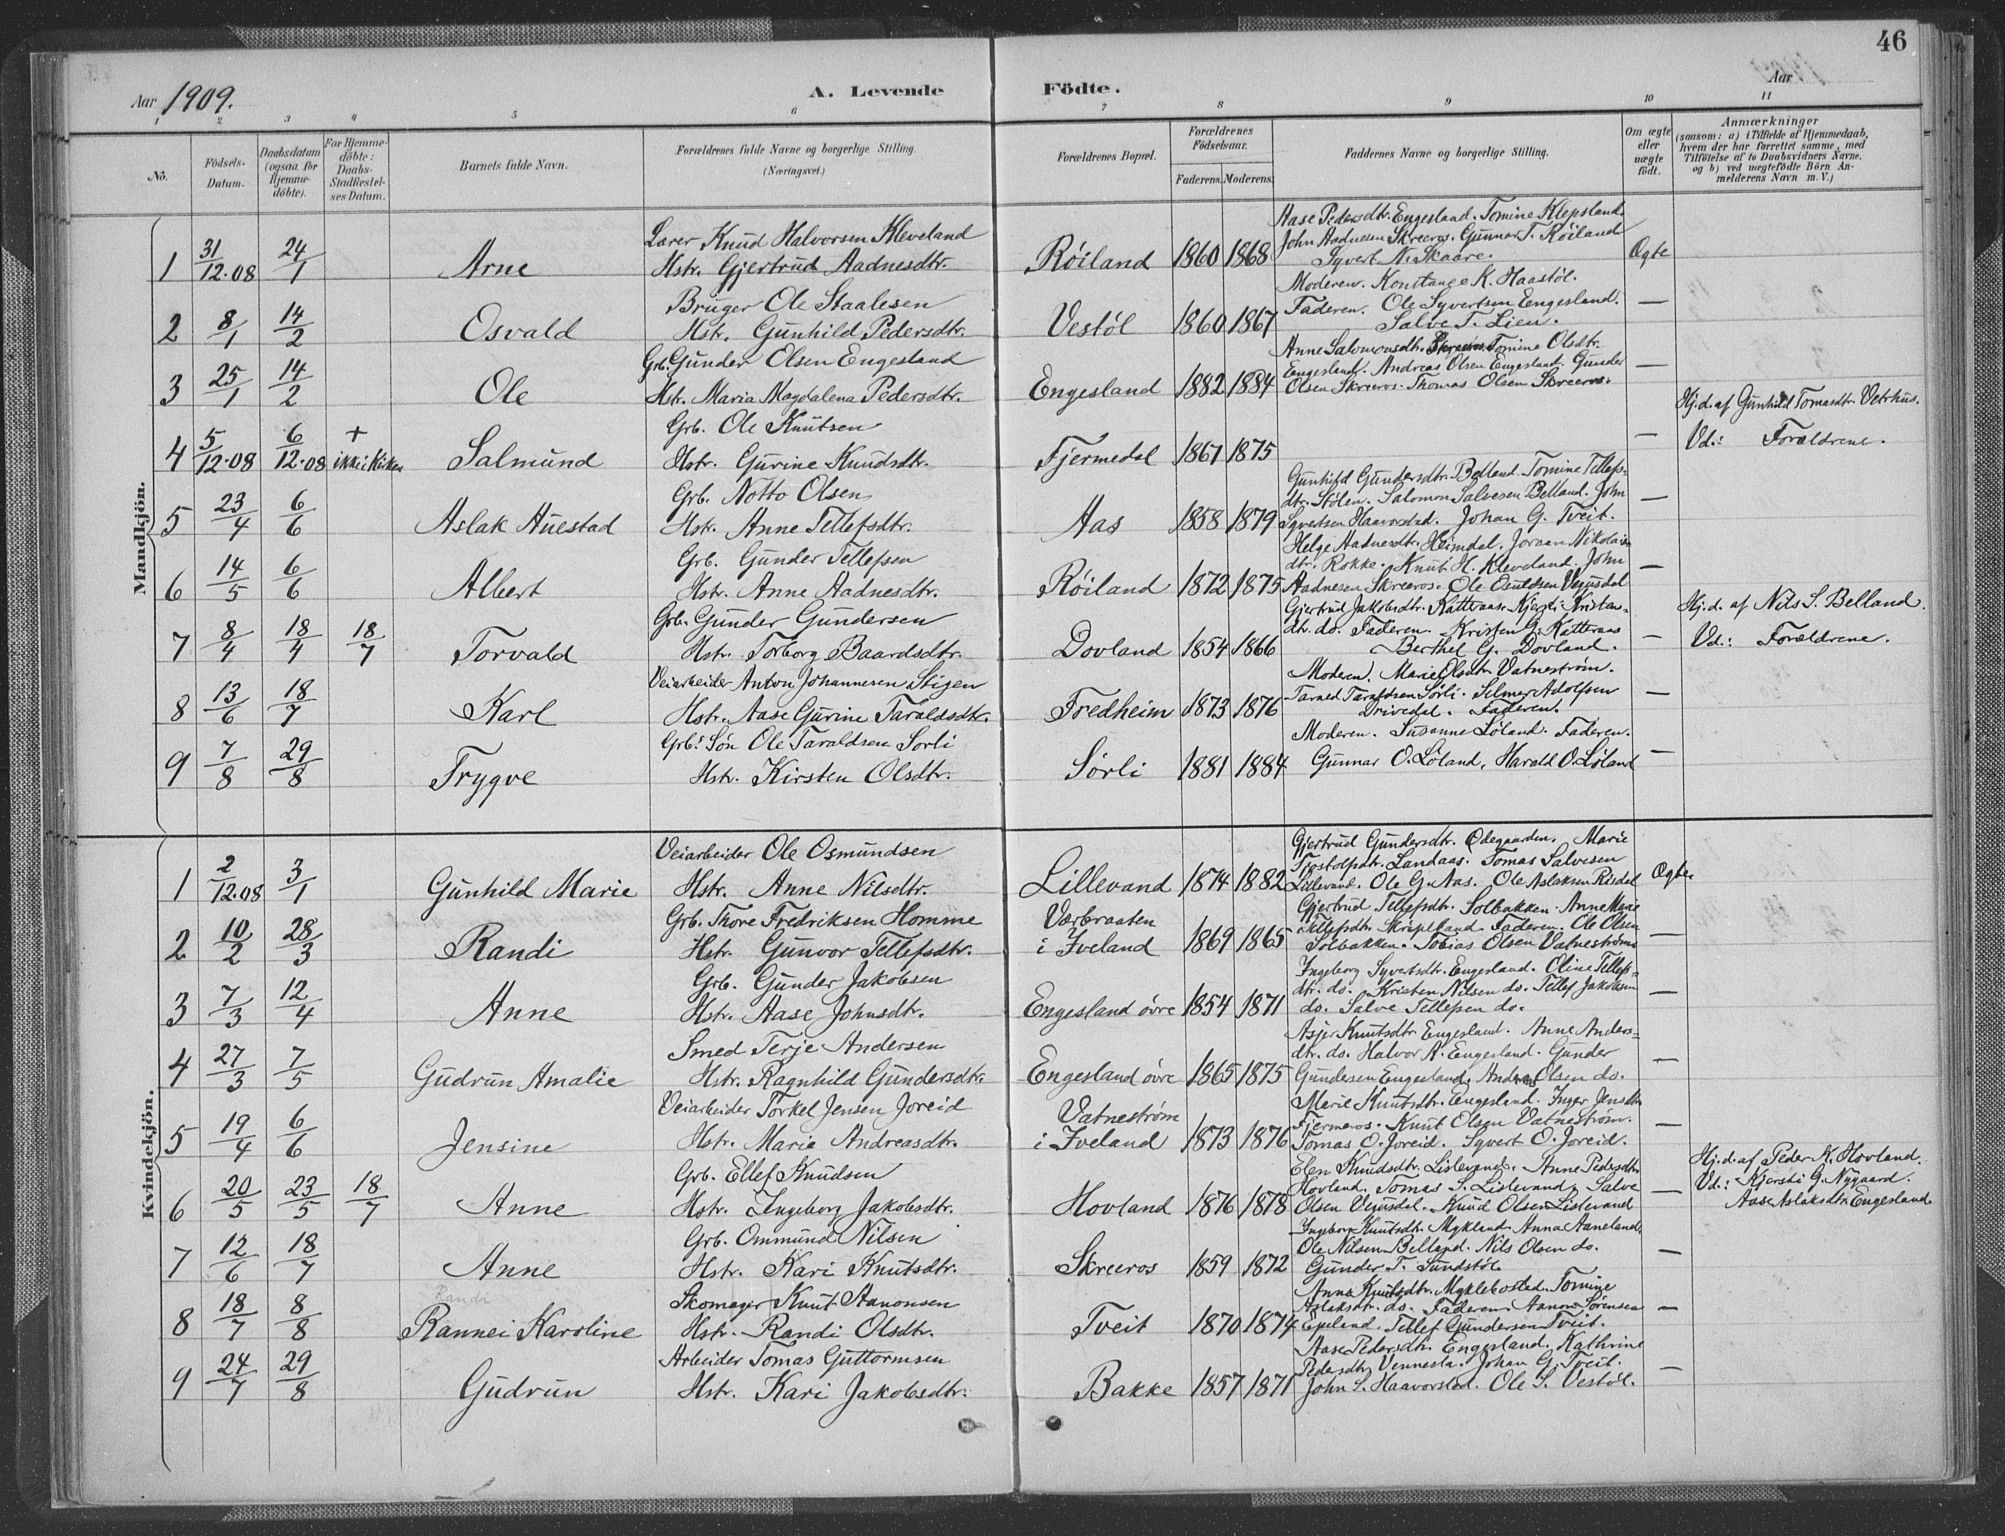 46
Aar 1909.
A. Levende Födte.
Aar
1 2 3 4 5 6 7 8 9 10 11
No.
Födsels-Datum.
Daabsdatum (ogsaa for Hjemmedöbte).
For Hjemmedöbte: Daabs-Stadfæstelses Datum.
Barnets fulde Navn.
Forældrenes fulde Navne og borgerlige Stilling. (Næringsvei.)
Forældrenes Bopæl.
Forældrenes Födselsaar.
Faderens. Moderens.
Faddernes Navne og borgerlige Stilling.
Om ægte eller uægte födt.
Anmærkninger (saasom: a) i Tilfælde af Hjemmedaab, hvem der har forrettet samme, med Tilföielse af to Daabsvidners Navne, og b) ved uægtefödte Börn Anmelderens Navn m. V.)
Mandkjön.
1 31/12.08 24/1 Arne
Lærer Knud Halvorsen Kleveland
Hstr. Gjertrud Aadnesdtr.
Röiland 1860 1868
Aase Pedersdtr. Engesland. Tomine Klepsland.
John Aadnesen Skreeros. Gunnar T. Röiland
Syvert N. Skaare.
Ægte
2 8/1 14/2 Osvald
Bruger Ole Staalesen
Hstr. Gunhild Pedersdtr.
Vestöl 1860 1867
Moderen. Konstanse K. Haastöl.
Faderen. Ole Syvertsen Engesland.
Salve T. Lien.
—
3 25/1 14/2 Ole
Grb. Gunder Olsen Engesland
Hstr. Maria Magdalena Pedersdtr.
Engesland 1882 1884
Anne Salomonsdtr. Skreeros Tomine Olsdtr.
Engesland. Andreas Olsen Engesland. Gunder
Olsen Skreeros. Thomas Olsen Skreeros.
—
4 5/12.08 6/12.08 + ikke i Kirken Salmund
Grb. Ole Knutsen
Hstr. Gurine Knudsdtr.
Fjermedal 1867 1875
—
Hj.d. af Gunhild Tomasdtr. Vetrhus.
Vd.: Forældrene.
5 23/4 6/6 Aslak Auestad
Grb. Notto Olsen
Hstr. Anne Tellefsdtr.
Aas 1858 1879
Gunhild Gundersdtr. Belland. Tomine Tellefs-
dtr. Stölen. Salomon Salvesen Belland. John
Syvertsen Haavorstad. Johan G. Tveit.
—
6 14/5 6/6 Albert
Grb. Gunder Tellefsen
Hstr. Anne Aadnesdtr.
Röiland 1872 1875
Helge Aadnesdtr. Heimdal. Joraan Nikolais-
dtr. Rokke. Knut H. Kleveland. John
Aadnesen Skreeros. Ole Vegusdal
—
7 8/4 18/4 18/7 Torvald
Grb. Gunder Gundersen
Hstr. Torborg Baardsdtr.
Dovland 1854 1866
Gjertrud Jakobsdtr. Katteraas. Kjersti Kristen-
dtr. do. Faderen. Kristen G. Katteraas
Berthel G. Dovland.
—
Hj.d. af Nils S. Belland.
Vd.: Forældrene.
8 13/6 18/7 Karl
Veiarbeider Anton Johannesen Stigen
Hstr. Aase Gurine Taraldsdtr.
Fredheim 1873 1876
Moderen. Marie Olsdtr. Vatneström.
Tarald Taraldsen Sörli. Selmer Adolfsen
Drivedal. Faderen.
—
9 7/8 29/8 Trygve
Grbs. Sön Ole Taraldsen Sorli
Hstr. Kirsten Olsdtr.
Sörli 1881 1884
Moderen. Susanne Löland. Faderen.
Gunnar O. Löland, Harald O. Löland
—
Kvindekjön.
1 2/12.08 3/1 Gunhild Marie
Veiarbeider Ole Osmundsen
Hstr. Anne Nilsdtr.
Lillevand 1874 1882
Gjertrud Gundersdtr. Ødegaarden. Marie
Fjostolfsdtr. Landaas. Tomas Salvesen
Lislevand. Ole G. Aas. Ole Aslaksen Risdal
Ægte
2 10/2 28/3 Randi
Grb. Thore Fredriksen Homme
Hstr. Gunvor Tellefsdtr.
Værbraaten
i Iveland 1869 1865
Gjertrud Tellefsdtr. Solbakken. Anne
Tellefsdtr. Skripeland. Faderen. Ole Olsen
Solbakken. Tobias Olsen Vatneström
—
3 7/3 12/4 Anne
Grb. Gunder Jakobsen
Hstr. Aase Johnsdtr.
Engesland övre 1854 1871
Ingeborg Syvertsdtr. Engesland. Oline Tellefs-
dtr. do. Kristen Nilsen do. Tellef Jakobsen
do. Salve Tellefsen do.
—
4 27/3 7/5 Gudrun Amalie
Smed Terje Andersen
Hstr. Ragnhild Gundersdtr.
Engesland övre 1865 1875
Asjer Knutsdtr. Engesland. Anne Anders-
dtr. do. Halvor A. Engesland. Gunder
Gundersen Engesland. Andreas Olsen do.
—
5 19/4 6/6 Jensine
Veiarbeider Torkel Jensen Joreid
Hstr. Marie Andreasdtr.
Vatneström
i Iveland 1873 1876
Marie Knutsdtr. Engesland. Inger Jensdtr.
Fjermeros. Knut Olsen Vatneström.
Tomas O. Joreid. Syvert O. Joreid.
—
6 20/5 23/5 18/7 Anne
Grb. Ellef Knudsen
Hstr. Ingeborg Jakobsdtr.
Hovland 1876 1878
Elen Knudsdtr. Lislevand. Anne Pedersdtr.
Hovland. Tomas S. Lislevand. Salve
Olsen Vegusdal. Knud Olsen Lislevand
—
Hj.d. af Peder K. Hovland.
Vd.: Kjersti G. Nygaard.
Aase Aslaksdtr. Engesland.
7 12/6 18/7 Anne
Grb. Ommund Nilsen
Hstr. Kari Knutsdtr.
Skreeros 1859 1872
Ingeborg Knutsdtr. Mykland. Anna Aaneland.
Ole Nilsen Belland. Nils Olsen do.
Gunder T. Sundstöl
—
8 18/7 8/8 Randi
Rannei Karoline
Skomager Knut Aanonsen
Hstr. Randi Olsdtr.
Tveit 1870 1874
Anna Knutsdtr. Myklebostad. Tomine
Aslaksdtr. do. Faderen. Aanon Sörensen
Epeland. Tellef Gundersen Tveit.
—
9 24/7 29/8 Gudrun
Arbeider Tomas Guttormsen
Hstr. Kari Jakobsdtr.
Bakke 1857 1871
Aase Pedersdtr. Engesland. Kathrine
Pedersdtr. Vennesla. Johan G. Tveit.
John S. Haavorstad. Ole S. Vestöl.
—